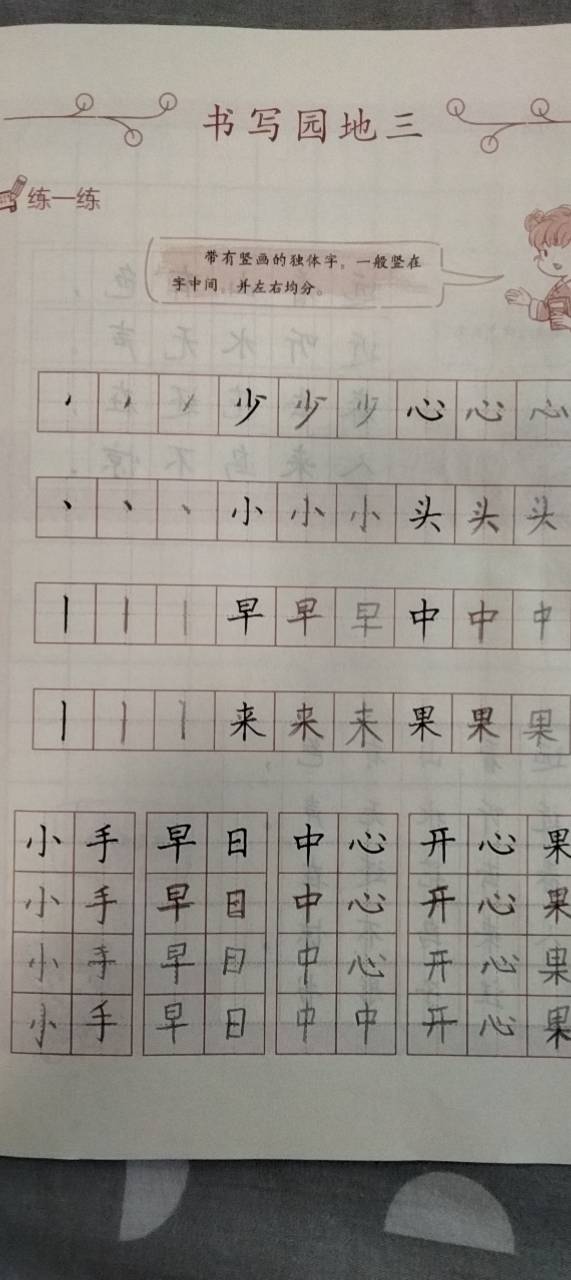 书写园地三
练一练
带有竖画的独体字，一般竖在
字中间，并左右均分。
丶 丶 丶 少 少 少 心 心 心
丶 丶 丶 小 小 小 头 头 头
丨 丨 丨 早 早 早 中 中 中
丨 丨 丨 来 来 来 果 果 果
小 手 早 日 中 心 开 心 果
小 手 早 目 中 心 开 心 果
小 手 早 日 中 心 开 心 果
小 手 早 日 中 中 开 心 果